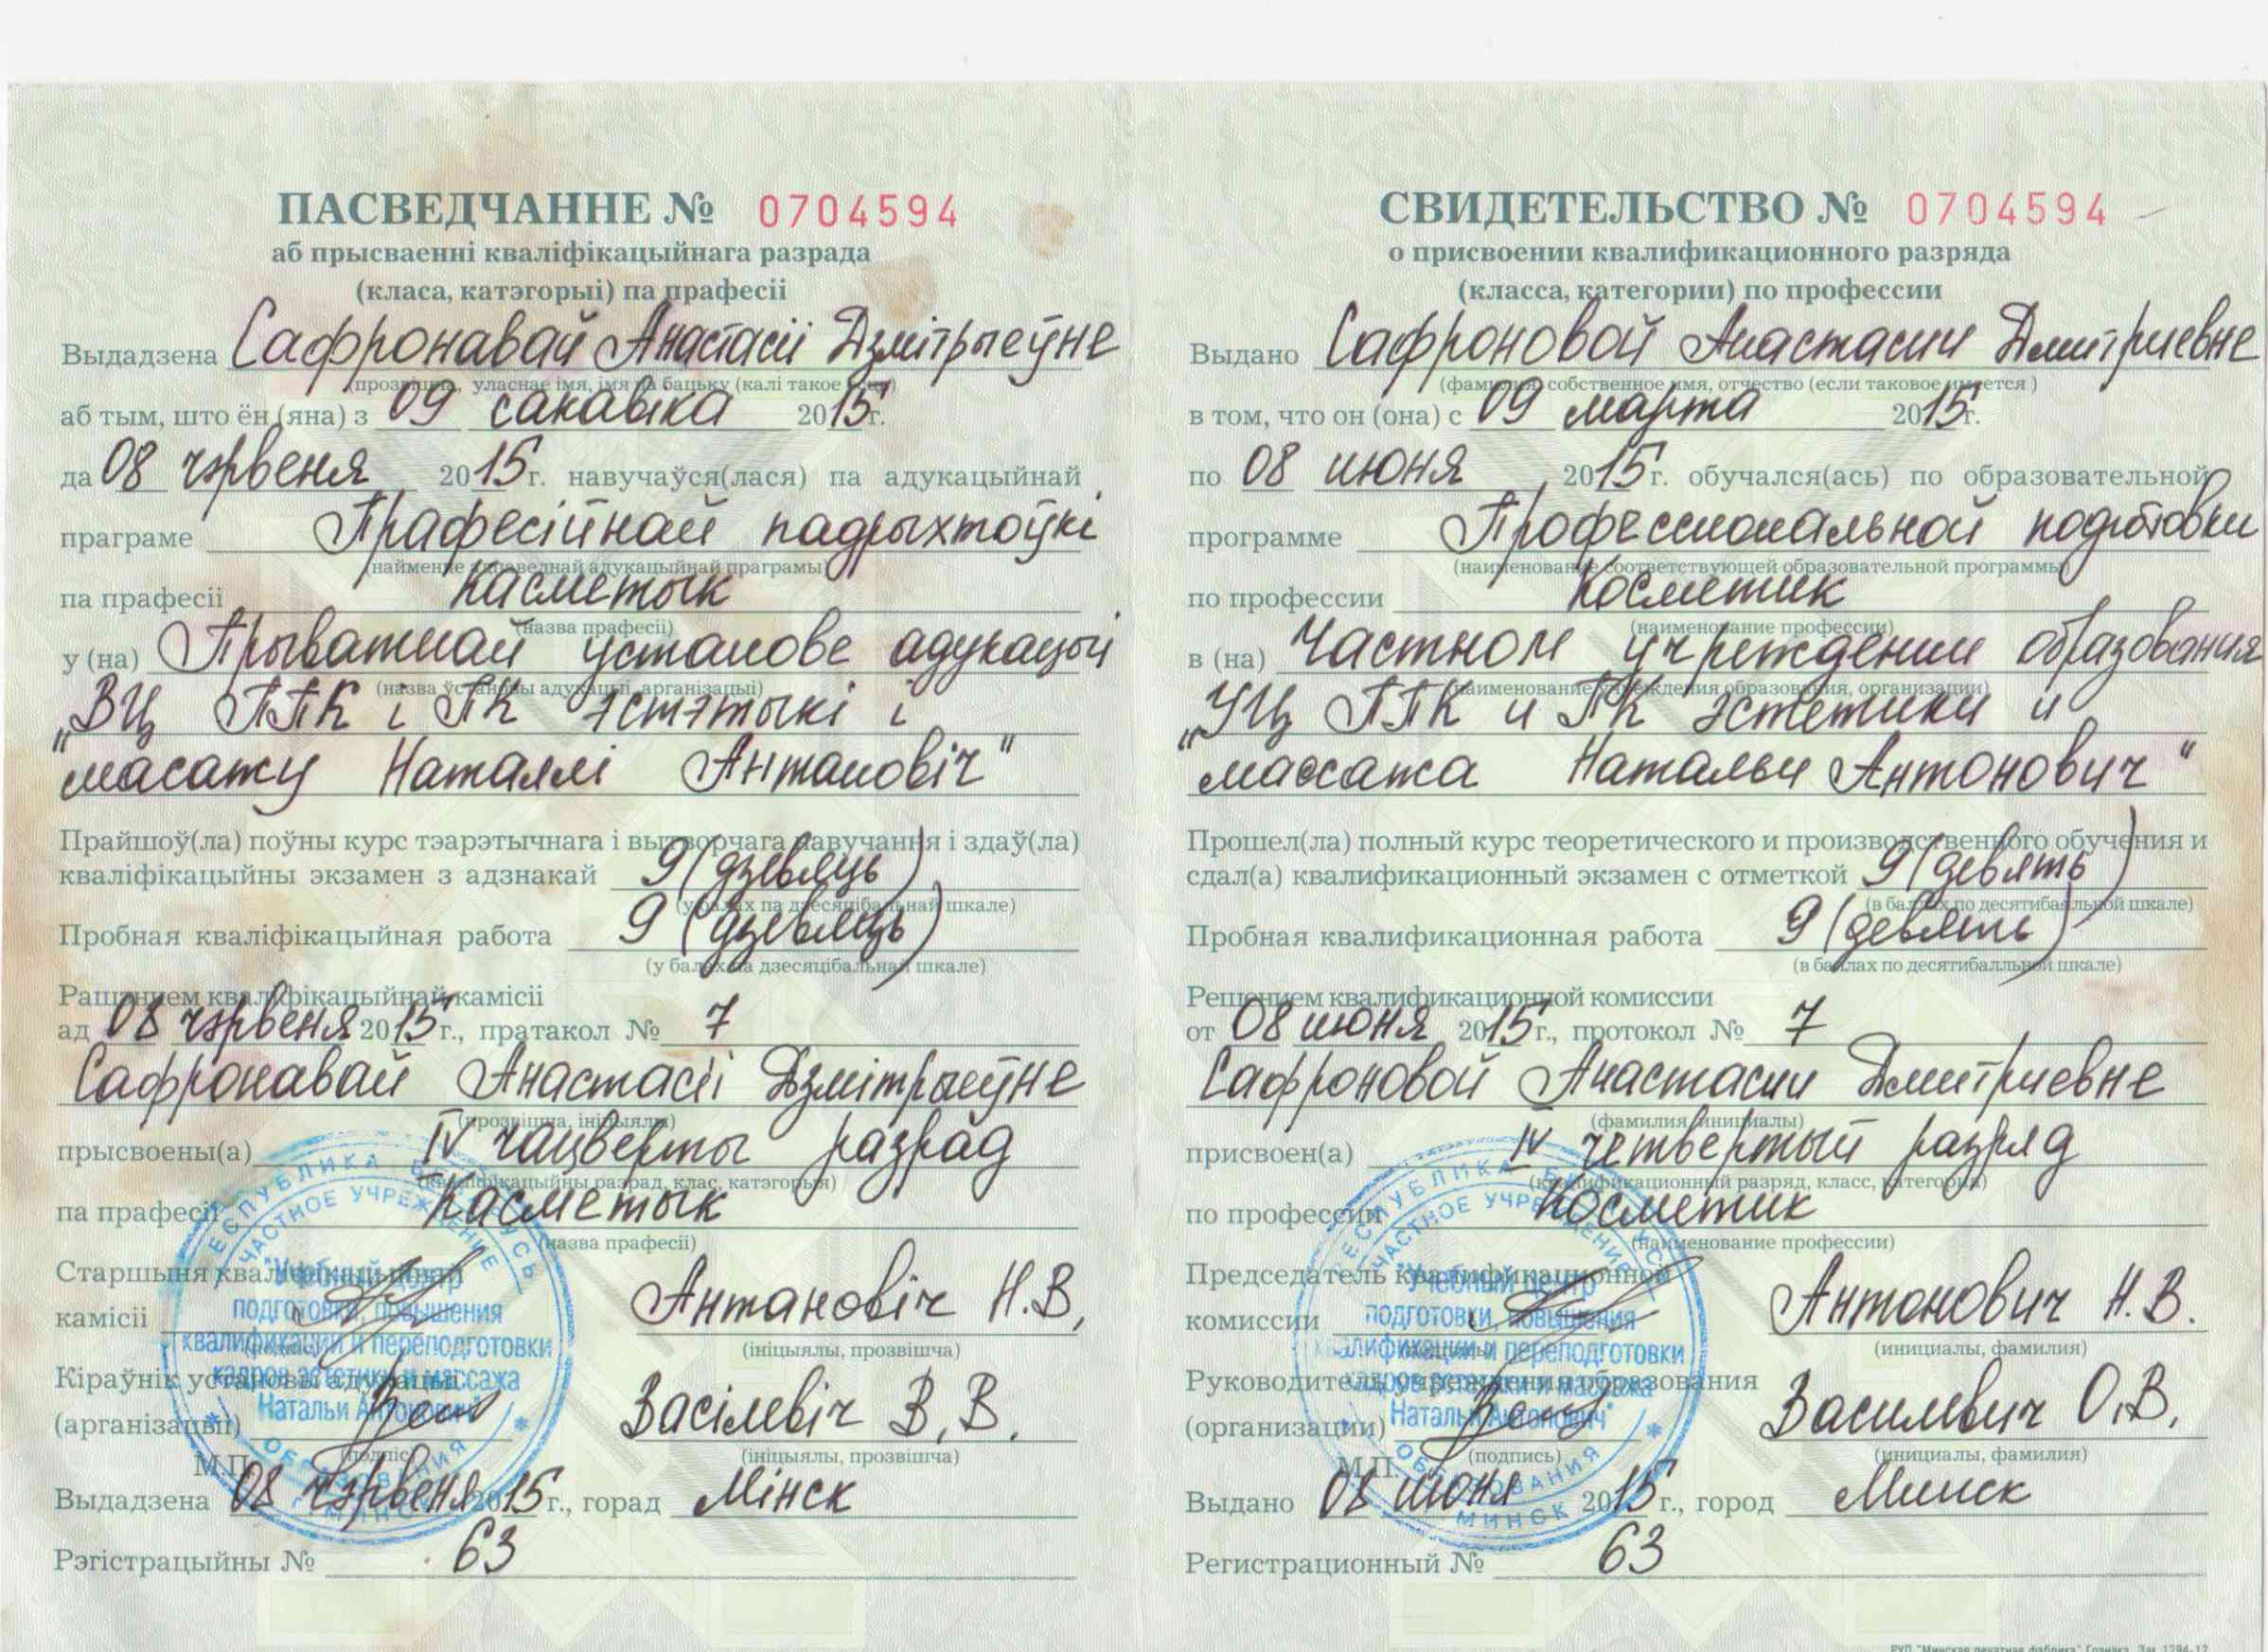 ПАСВЕДЧАННЕ № 0704594
аб прысваенні кваліфікацыйнага разрада
(класа, катэгорыі) па прафесіі
Выдадзена Сафронавай Анастасіі Дзмітрыеўне
(прозвішча, уласнае імя, імя па бацьку (калі такое
аб тым, што ён (яна) з 09 сакавіка 2015г.
да 08 чэрвеня 2015г. навучаўся(лася) па адукацыйнай
праграме Прафесійнай падрыхтоўкі
(найменне адпаведнай адукацыйнай праграмы)
па прафесіі касметык
(назва прафесіі)
у (на) Прыватнай установе адукацыі
(назва ўстановы адукацыі, арганізацыі)
„ВЦ ППК і ПК эстэтыкі і
масажу Наталлі Антановіч"
Прайшоў(ла) поўны курс тэарэтычнага і вытворчага навучання і здаў(ла)
кваліфікацыйны экзамен з адзнакай 9 (дзевяць)
(у балах па дзесяцібальнай шкале)
Пробная кваліфікацыйная работа 9 (дзевяць)
(у балах па дзесяцібальнай шкале)
Рашэннем кваліфікацыйнай камісіі
ад 08 чэрвеня 2015г., пратакол № 7
Сафронавай Анастасіі Дзмітрыеўне
(прозвішча, ініцыялы)
прысвоены(а) IV чацверты разрад
(кваліфікацыйны разрад, клас, катэгорыя)
па прафесіі касметык
(назва прафесіі)
Старшыня кваліфікацыйнай
камісіі Антановіч Н.В.
(подпіс) (ініцыялы, прозвішча)
Кіраўнік установы адукацыі
(арганізацыі) Васілевіч В.В.
(подпіс) (ініцыялы, прозвішча)
М.П.
Выдадзена 08 чэрвеня 2015г., горад Мінск
Рэгістрацыйны № 63
РЕСПУБЛИКА БЕЛАРУСЬ
ЧАСТНОЕ УЧРЕЖДЕНИЕ
"Учебный центр
подготовки, повышения
квалификации и переподготовки
кадров эстетики и массажа
Натальи Антонович"
ОБРАЗОВАНИЯ
МИНСК
СВИДЕТЕЛЬСТВО № 0704594
о присвоении квалификационного разряда
(класса, категории) по профессии
Выдано Сафроновой Анастасии Дмитриевне
(фамилия, собственное имя, отчество (если таковое имеется)
в том, что он (она) с 09 марта 2015г.
по 08 июня 2015г. обучался(ась) по образовательной
программе Профессиональной подготовки
(наименование соответствующей образовательной программы)
по профессии косметик
(наименование профессии)
в (на) Частном учреждении образования
(наименование учреждения образования, организации)
„УЦ ППК и ПК эстетики и
массажа Натальи Антонович"
Прошел(ла) полный курс теоретического и производственного обучения и
сдал(а) квалификационный экзамен с отметкой 9 (девять)
(в баллах по десятибалльной шкале)
Пробная квалификационная работа 9 (девять)
(в баллах по десятибалльной шкале)
Решением квалификационной комиссии
от 08 июня 2015г., протокол № 7
Сафроновой Анастасии Дмитриевне
(фамилия, инициалы)
присвоен(а) IV четвертый разряд
(квалификационный разряд, класс, категория)
по профессии косметик
(наименование профессии)
Председатель квалификационной
комиссии Антонович Н.В.
(инициалы, фамилия)
Руководитель учреждения образования
(организации) Василевич О.В.
(подпись) (инициалы, фамилия)
М.П.
Выдано 08 июня 2015г., город Минск
Регистрационный № 63
РЕСПУБЛИКА БЕЛАРУСЬ
ЧАСТНОЕ УЧРЕЖДЕНИЕ
"Учебный центр
подготовки, повышения
квалификации и переподготовки
кадров эстетики и массажа
Натальи Антонович"
ОБРАЗОВАНИЯ
МИНСК
РУП "Минская печатная фабрика" Гознака. Зак. 1294-12